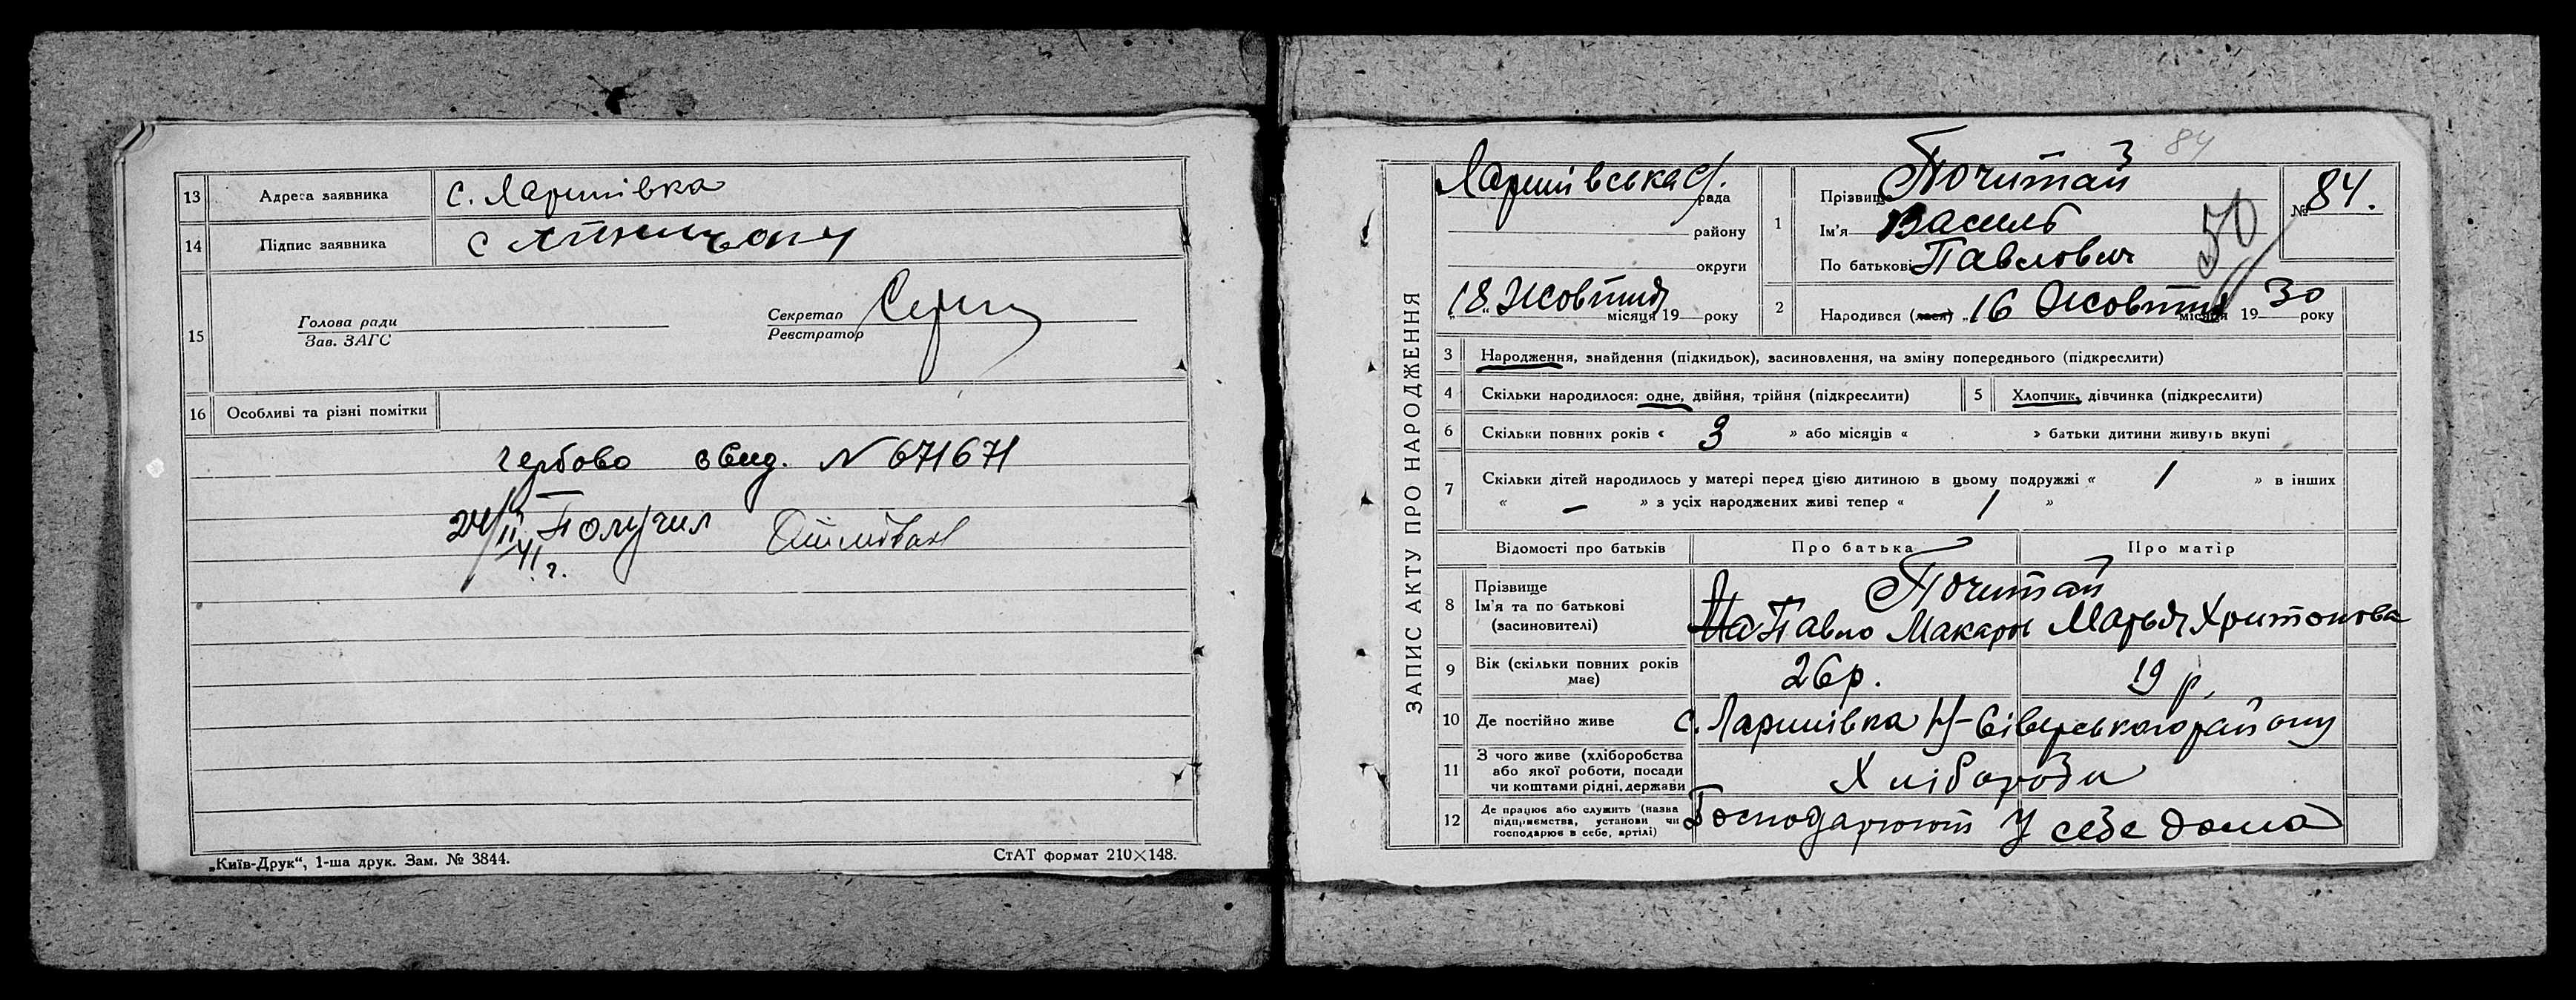 13 Адреса заявника с. Ларинівка
14 Підпис заявника
15 Голова ради
Зав. ЗАГС
Секретар
Реєстратор
16 Особливі та різні помітки
гербово свид. N 671671
24/II 41 г. Получил
„Київ-Друк“, 1-ша друк. Зам. № 3844.
СтАТ формат 210×148.
84
ЗАПИС АКТУ ПРО НАРОДЖЕННЯ
Ларинівська с/. рада
району
округи
18 Жовтня місяця 19 року
1 Прізвище Почитай
Ім'я Василь
По батькові Павлович
50
№ 84.
2 Народився (лася) „16 Жовтня місяця 1930 року
3 Народження, знайдення (підкидьок), засиновлення, на зміну попереднього (підкреслити)
4 Скільки народилося: одне, двійня, трійня (підкреслити)
5 Хлопчик, дівчинка (підкреслити)
6 Скільки повних років « 3 » або місяців « » батьки дитини живуть вкупі
7 Скільки дітей народилось у матері перед цією дитиною в цьому подружжі « 1 » в інших
« — » з усіх народжених живі тепер « 1 »
Відомості про батьків Про батька Про матір
8 Прізвище
Ім'я та по батькові
(засиновителі)
Почитай
Павло Макаров Марья Хритонова
9 Вік (скільки повних років має) 26 р. 19 р.
10 Де постійно живе с. Ларинівка Н-Сіверського району
11 З чого живе (хліборобства
або якої роботи, посади
чи коштами рідні, держави
Хлібороби
12 Де працює або служить (назва
підприємства, установи чи
господарює в себе, артілі)
Господарюют У себе дома